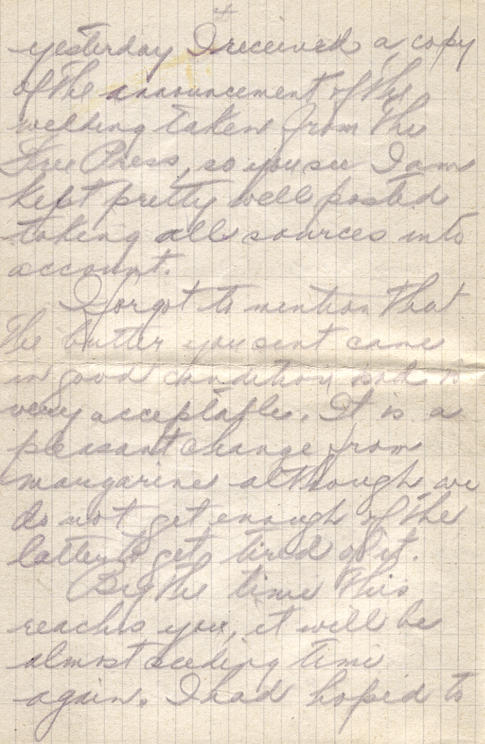 4
yesterday I received a copy
of the announcement of the
wedding taken from the
Free Press, so you see I am
kept pretty well posted
taking all sources into
account.
I forgot to mention that
the butter you sent came
in good condition and is
very acceptable. It is a
pleasant change from
margarine although we
do not get enough of the
latter to get tired of it.
By the time this
reaches you, it will be
almost seeding time
again. I had hoped to